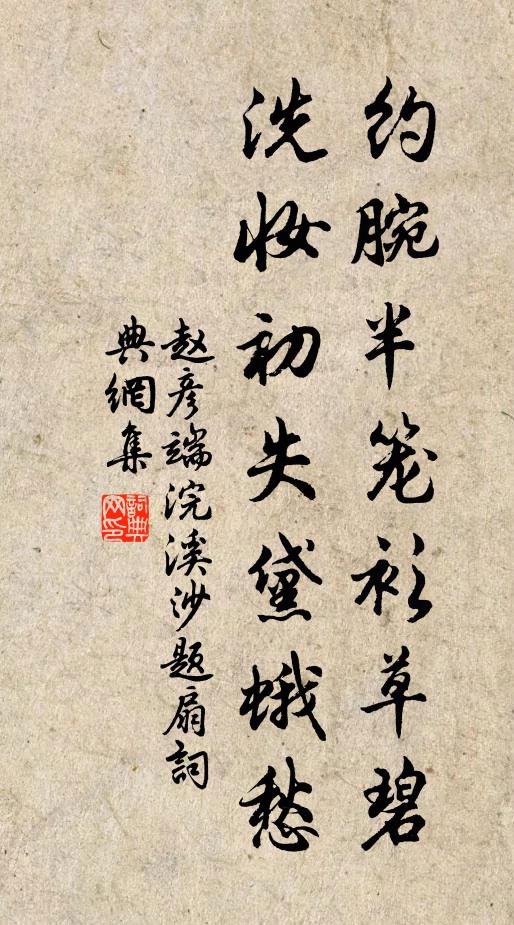 约腕半笼衫草碧
洗妆初失黛蛾愁
赵彦端浣溪沙题扇詞
典網集
詞典
网印